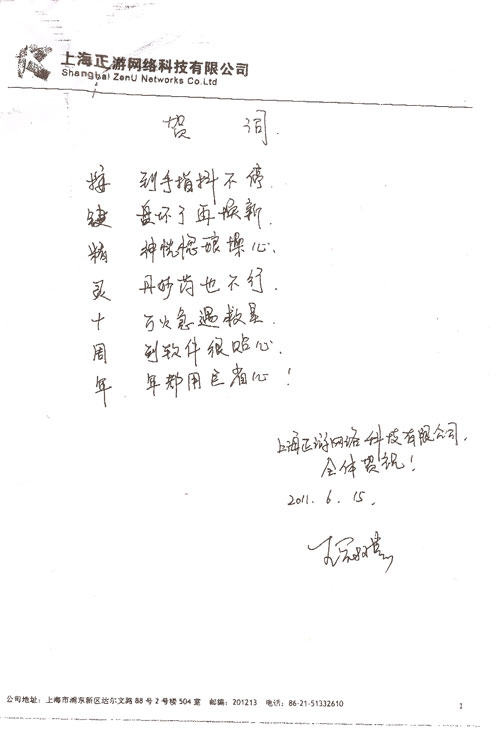 上海正游网络科技有限公司
Shanghai ZenU Networks Co.Ltd
贺 词.
按 到手指抖不停.
键 盘坏了再换新.
精 神恍惚娘操心.
灵 丹妙药也不行.
十 万火急遇救星.
周 到软件很贴心.
年 年都用它省心！
上海正游网络科技有限公司.
全体贺祝！
2011. 6. 15.
公司地址：上海市浦东新区达尔文路88号2号楼504室 邮编：201213 电话：86-21-51332610
1